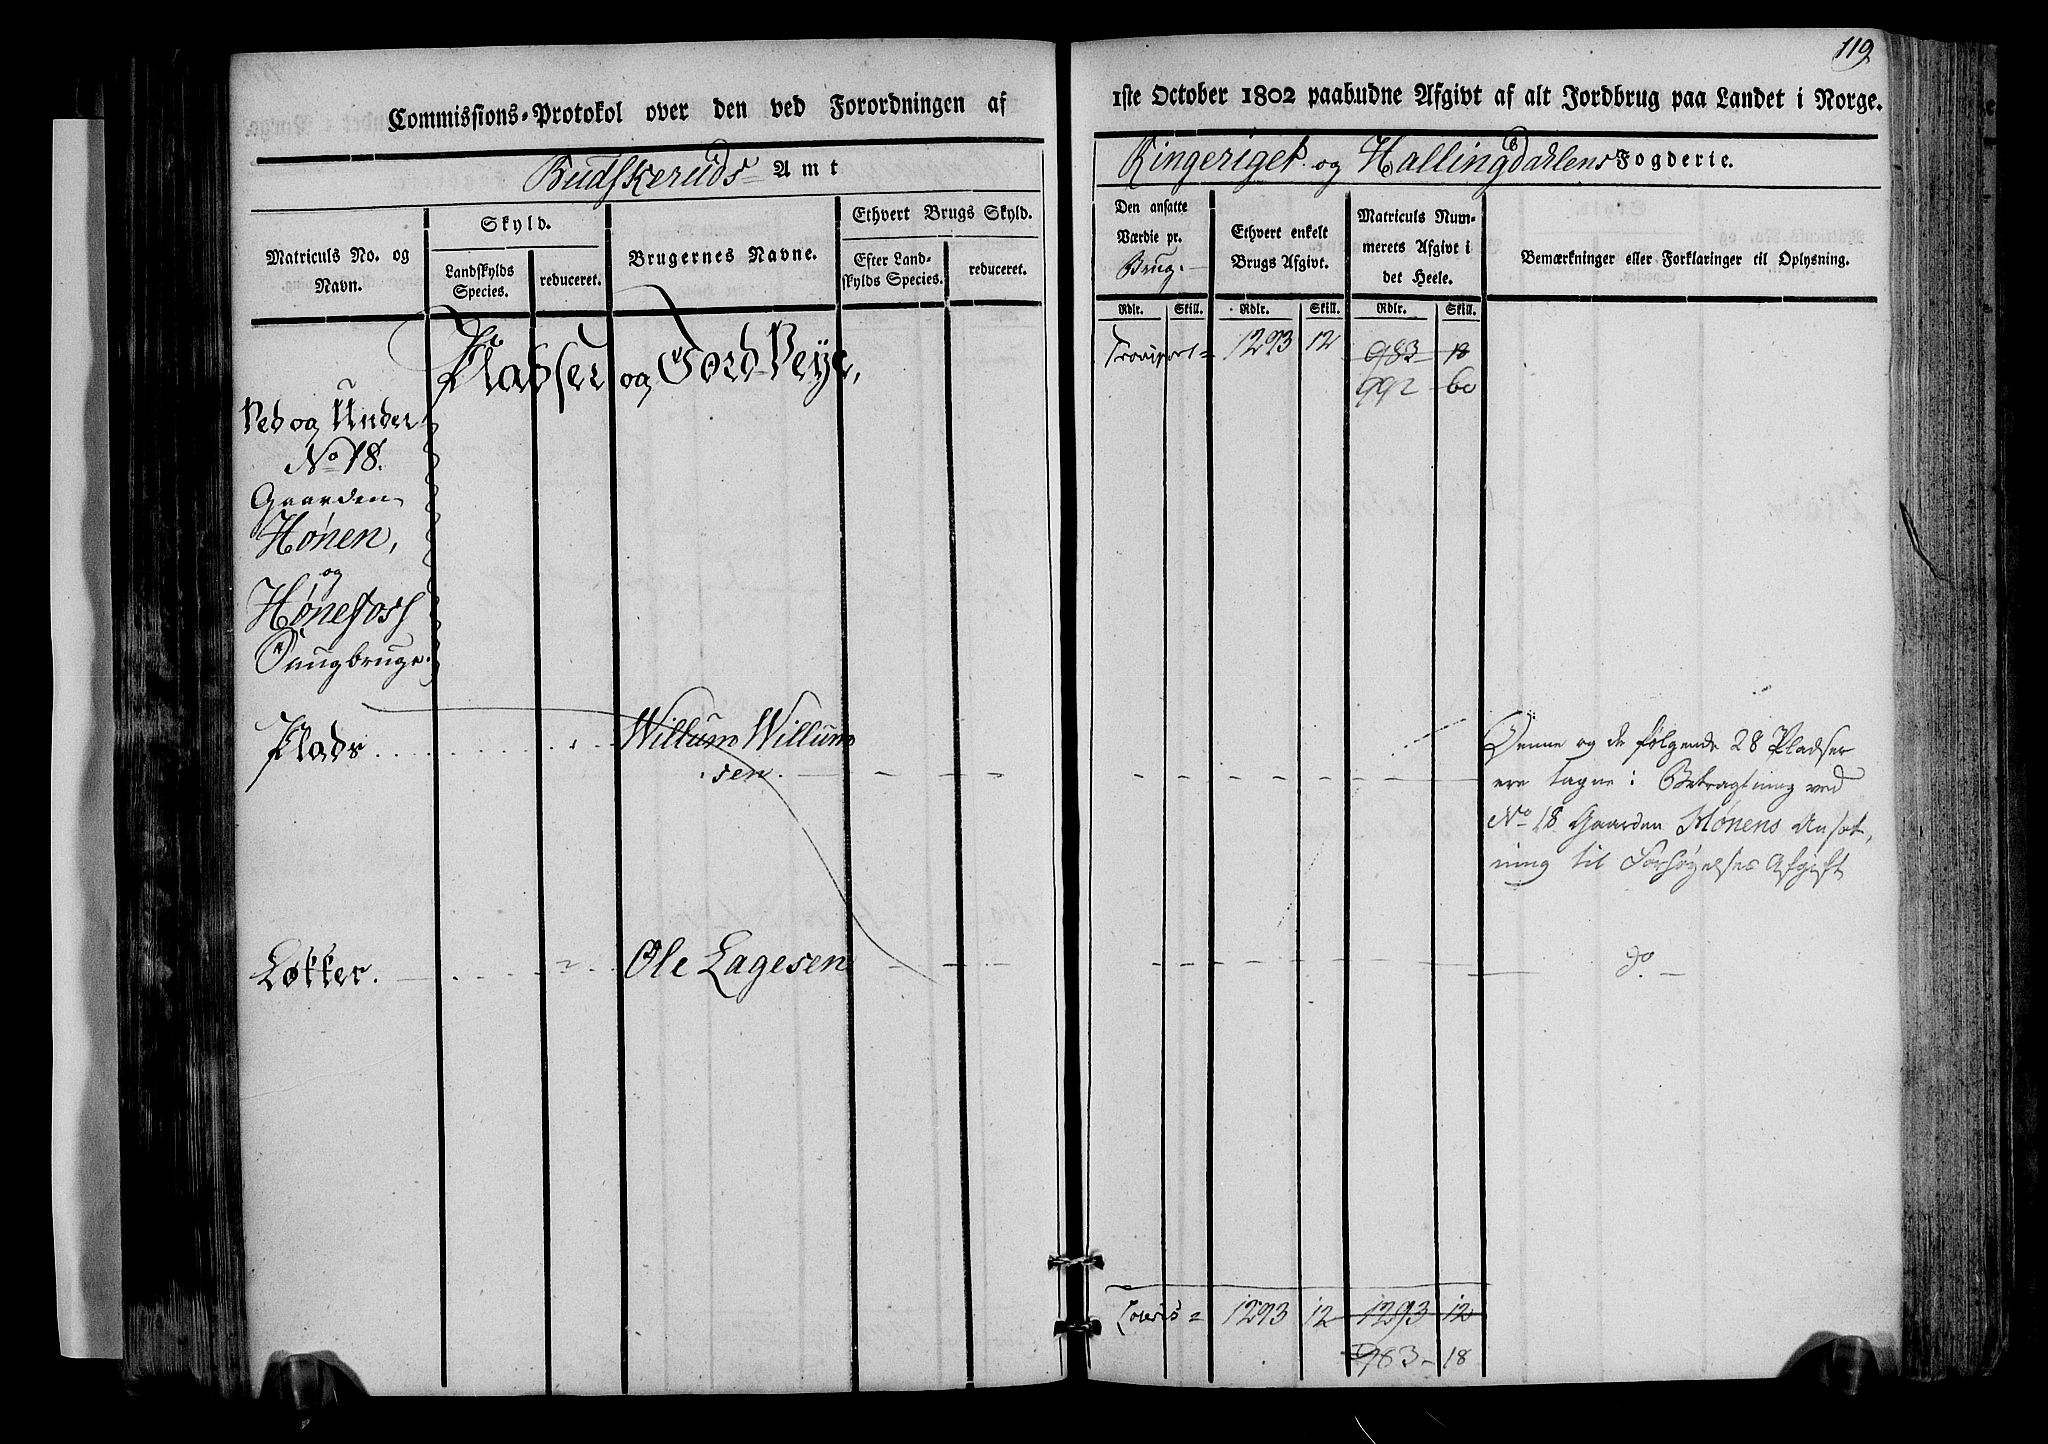 119
Commissions-Protokol over den ved Forordningen af
1ste October 1802 paabudne Afgivt af alt Jordbrug paa Landet i Norge.
Budskeruds Amt
Ringeriget og Hallingdahlens Fogderie.
Matriculs No. og Navn.
Skyld.
Landskylds Species.
reduceret.
Brugernes Navne.
Ethvert Brugs Skyld.
Efter Landskylds Species.
reduceret.
Den ansatte Værdie pr. Brug.
Ethvert enkelt Brugs Afgivt.
Matriculs Nummerets Afgivt i det Heele.
Bemærkninger eller Forklaringer til Oplysning.
Rdlr. Skill. Rdlr. Skill. Rdlr. Skill.
Transport = 1293 12 983 18
992 60
Pladser og Jord Veye,
Ved og Under
No 18.
Gaarden
Hønen,
og
Hønefoss
Saugbruge.
Plads
Willum Willum
sen.
Denne og de følgende 28 Pladser
ere tagne i Betragtning ved
No 18 Gaarden Hønens Ansæt,
ning til Forhøyelses Afgift
Løkker.
Ole Lagesen
do.
Lateris = 1293 12 1293 12
983 - 18